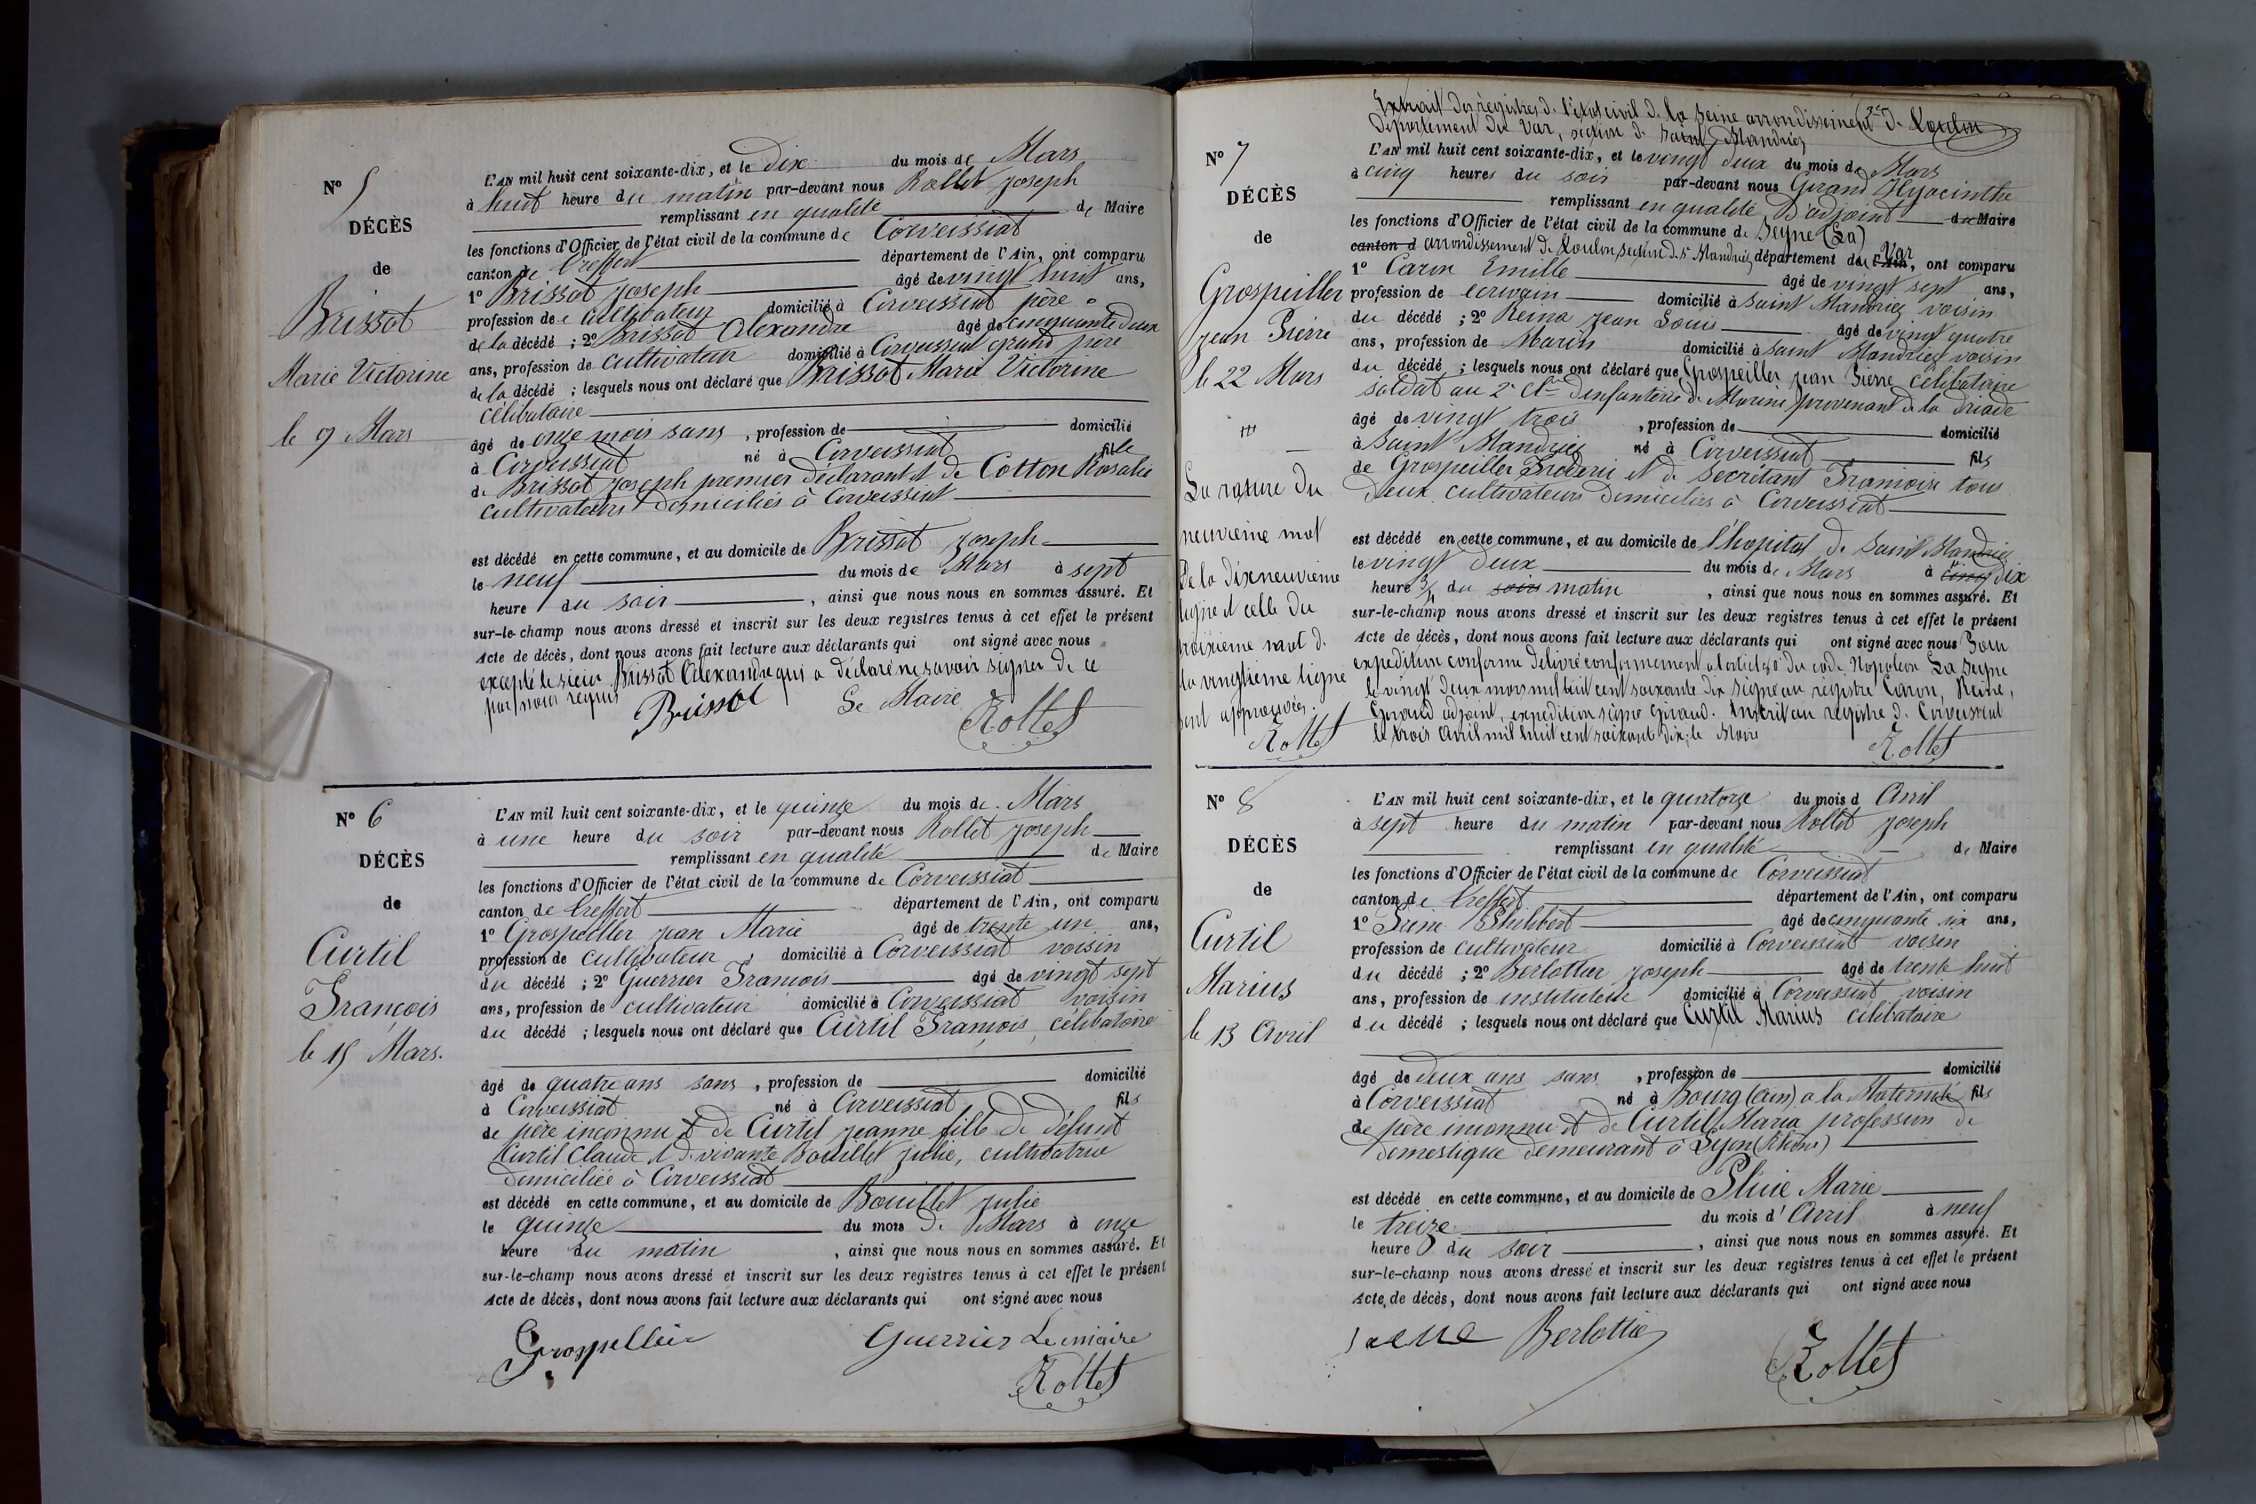 N° 5
DÉCÈS
de
Brissot
Marie Victorine
le 9 Mars
L'AN mil huit cent soixante-dix, et le Dix du mois de Mars
à huit heure du matin par-devant nous Rollet Joseph
remplissant en qualité de Maire
les fonctions d'Officier de l'état civil de la commune de Corveissiat
canton de Treffort département de l'Ain, ont comparu
1° Brissot Joseph âgé de vingt huit ans,
profession de cultivateur domicilié à Corveissiat père
de la décédé ; 2° Brissot Alexandre âgé de cinquante deux
ans, profession de cultivateur domicilié à Corveissiat grand père
de la décédé ; lesquels nous ont déclaré que Brissot Marie Victorine
célibataire
âgé de onze mois sans , profession de domicilié
à Corveissiat né à Corveissiat fille
de Brissot Joseph premier déclarant et de Cotton Rosalie
cultivateurs domiciliés à Corveissiat
est décédé en cette commune, et au domicile de Brissot Joseph
le neuf du mois de Mars à sept
heure du soir , ainsi que nous nous en sommes assuré. Et
sur-le-champ nous avons dressé et inscrit sur les deux registres tenus à cet effet le présent
Acte de décès, dont nous avons fait lecture aux déclarants qui ont signé avec nous
excepté le sieur Brissot Alexandre qui a déclaré ne savoir signer de ce
par nous requis
Brissot Le Maire Rollet
N° 6
DÉCÈS
de
Curtil
François
le 15 Mars.
L'AN mil huit cent soixante-dix, et le quinze du mois de Mars
à une heure du soir par-devant nous Rollet Joseph
remplissant en qualité de Maire
les fonctions d'Officier de l'état civil de la commune de Corveissiat
canton de Treffort département de l'Ain, ont comparu
1° Grospellier Jean Marie âgé de trente un ans,
profession de cultivateur domicilié à Corveissiat voisin
du décédé ; 2° Guerrier François âgé de vingt sept
ans, profession de cultivateur domicilié à Corveissiat voisin
du décédé ; lesquels nous ont déclaré que Curtil François, célibataire
âgé de quatre ans sans , profession de domicilié
à Corveissiat né à Corveissiat fils
de père inconnu et de Curtil Jeanne fille de défunt
Curtil Claude et d. vivante Bouillet Julie, cultivatrice
domiciliée à Corveissiat
est décédé en cette commune, et au domicile de Bouillet Julie
le quinze du mois de Mars à onze
heure du matin , ainsi que nous nous en sommes assuré. Et
sur-le-champ nous avons dressé et inscrit sur les deux registres tenus à cet effet le présent
Acte de décès, dont nous avons fait lecture aux déclarants qui ont signé avec nous
Grospellier Guerrier Le maire
Rollet
Extrait des registres de l'état civil de la Seine arrondissement (3e) de Toulon
Département du Var, section de Saint Mandrier
N° 7
DÉCÈS
de
Grospeiller
Jean Pierre
le 22 Mars
La rature du
neuvième mot
De la dixneuvième
ligne et celle du
troixième mot d.
la vingtième ligne
sont approuvées.
Rollet
L'AN mil huit cent soixante-dix, et le vingt deux du mois de Mars
à cinq heures du soir par-devant nous Girand Hyacinthe
remplissant en qualité D'adjoint du Maire
les fonctions d'Officier de l'état civil de la commune de Seyne (La)
canton d arrondissement de Toulon, section d. St Mandrier département du l'Ain Var, ont comparu
1° Caron Emille âgé de vingt sept ans,
profession de écrivain domicilié à Saint Mandrier voisin
du décédé ; 2° Reina Jean Louis âgé de vingt quatre
ans, profession de Marin domicilié à Saint Mandrier voisin
du décédé ; lesquels nous ont déclaré que Grospeiller Jean Pierre célibataire
soldat au 2e d'infanterie de Marine provenant de la Driade
âgé de vingt trois , profession de domicilié
à Saint Mandrier né à Corveissiat fils
de Grospeiller Frederic et de Secrétant Françoise tous
deux cultivateurs domiciliés à Corveissiat
est décédé en cette commune, et au domicile de l'hopital de Saint Mandrier
le vingt deux du mois de Mars à cinq dix
heure 3/4 du soir matin , ainsi que nous nous en sommes assuré. Et
sur-le-champ nous avons dressé et inscrit sur les deux registres tenus à cet effet le présent
Acte de décès, dont nous avons fait lecture aux déclarants qui ont signé avec nous Pour
expedition conforme delivré conformement a l'article 80 du code Napoleon La Seyne
le vingt deux mars mil huit cent soixante dix signé au registre Caron, Reine,
Girand adjoint, expedition signé Giraud. Inscrit au registre d. Corveissiat
le trois avril mil huit cent soixante dix, le Maire
Rollet
N° 8
DÉCÈS
de
Curtil
Marius
le 13 Avril
L'AN mil huit cent soixante-dix, et le quatorze du mois d Avril
à sept heure du matin par-devant nous Rollet Joseph
remplissant en qualité de Maire
les fonctions d'Officier de l'état civil de la commune de Corveissiat
canton de Treffort département de l'Ain, ont comparu
1° Philibert âgé de cinquante six ans,
profession de cultivateur domicilié à Corveissiat voisin
du décédé ; 2° Berlottier Joseph âgé de trente huit
ans, profession de instituteur domicilié à Corveissiat voisin
du décédé ; lesquels nous ont déclaré que Curtil Marius célibataire
âgé de deux ans sans , profession de domicilié
à Corveissiat né à Bourg (Ain) a la Maternité fils
de père inconnu et de Curtil Maria profession de
domestique demeurant à Lyon (Rhône)
est décédé en cette commune, et au domicile de Marie
le treize du mois d' Avril à neuf
heure du soir , ainsi que nous nous en sommes assuré. Et
sur-le-champ nous avons dressé et inscrit sur les deux registres tenus à cet effet le présent
Acte de décès, dont nous avons fait lecture aux déclarants qui ont signé avec nous
Berlottier Rollet